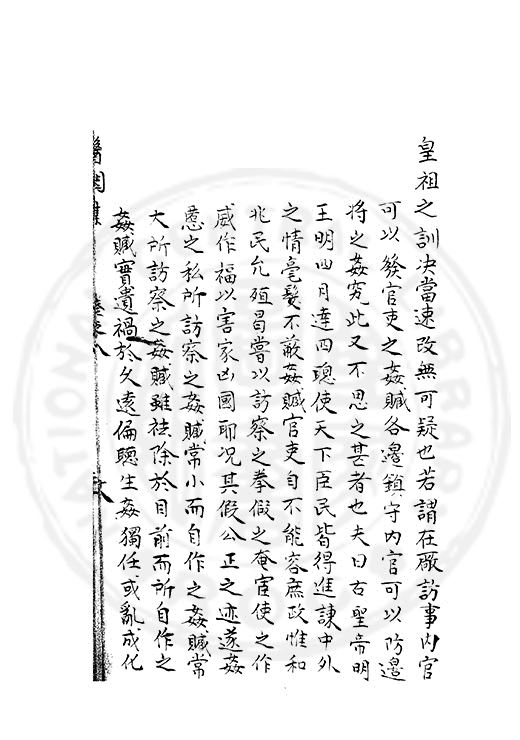 皇祖之訓決當速改無可疑也若諸在厰訪事內官
可以發官吏之姦贓各邊鎮守內官可以防邊
將之姦宄此又不思之甚者也夫曰古聖帝明
王明四月達四聰使天下臣民皆得進諫中外
之情毫髮不蔽姦贓官吏自不能容庶政惟和
兆民允殖曷嘗以訪察之拳假之奄宦使之作
威作福以害家凶國耶况其假公正之迹遂姦
慝之私所訪察之姦贓常小而自作之姦贓常
大所訪察之姦贓雖祛除於目前而所自作之
姦贓實遺禍於久遠偏聽生姦獨任成亂成化
醫閭集